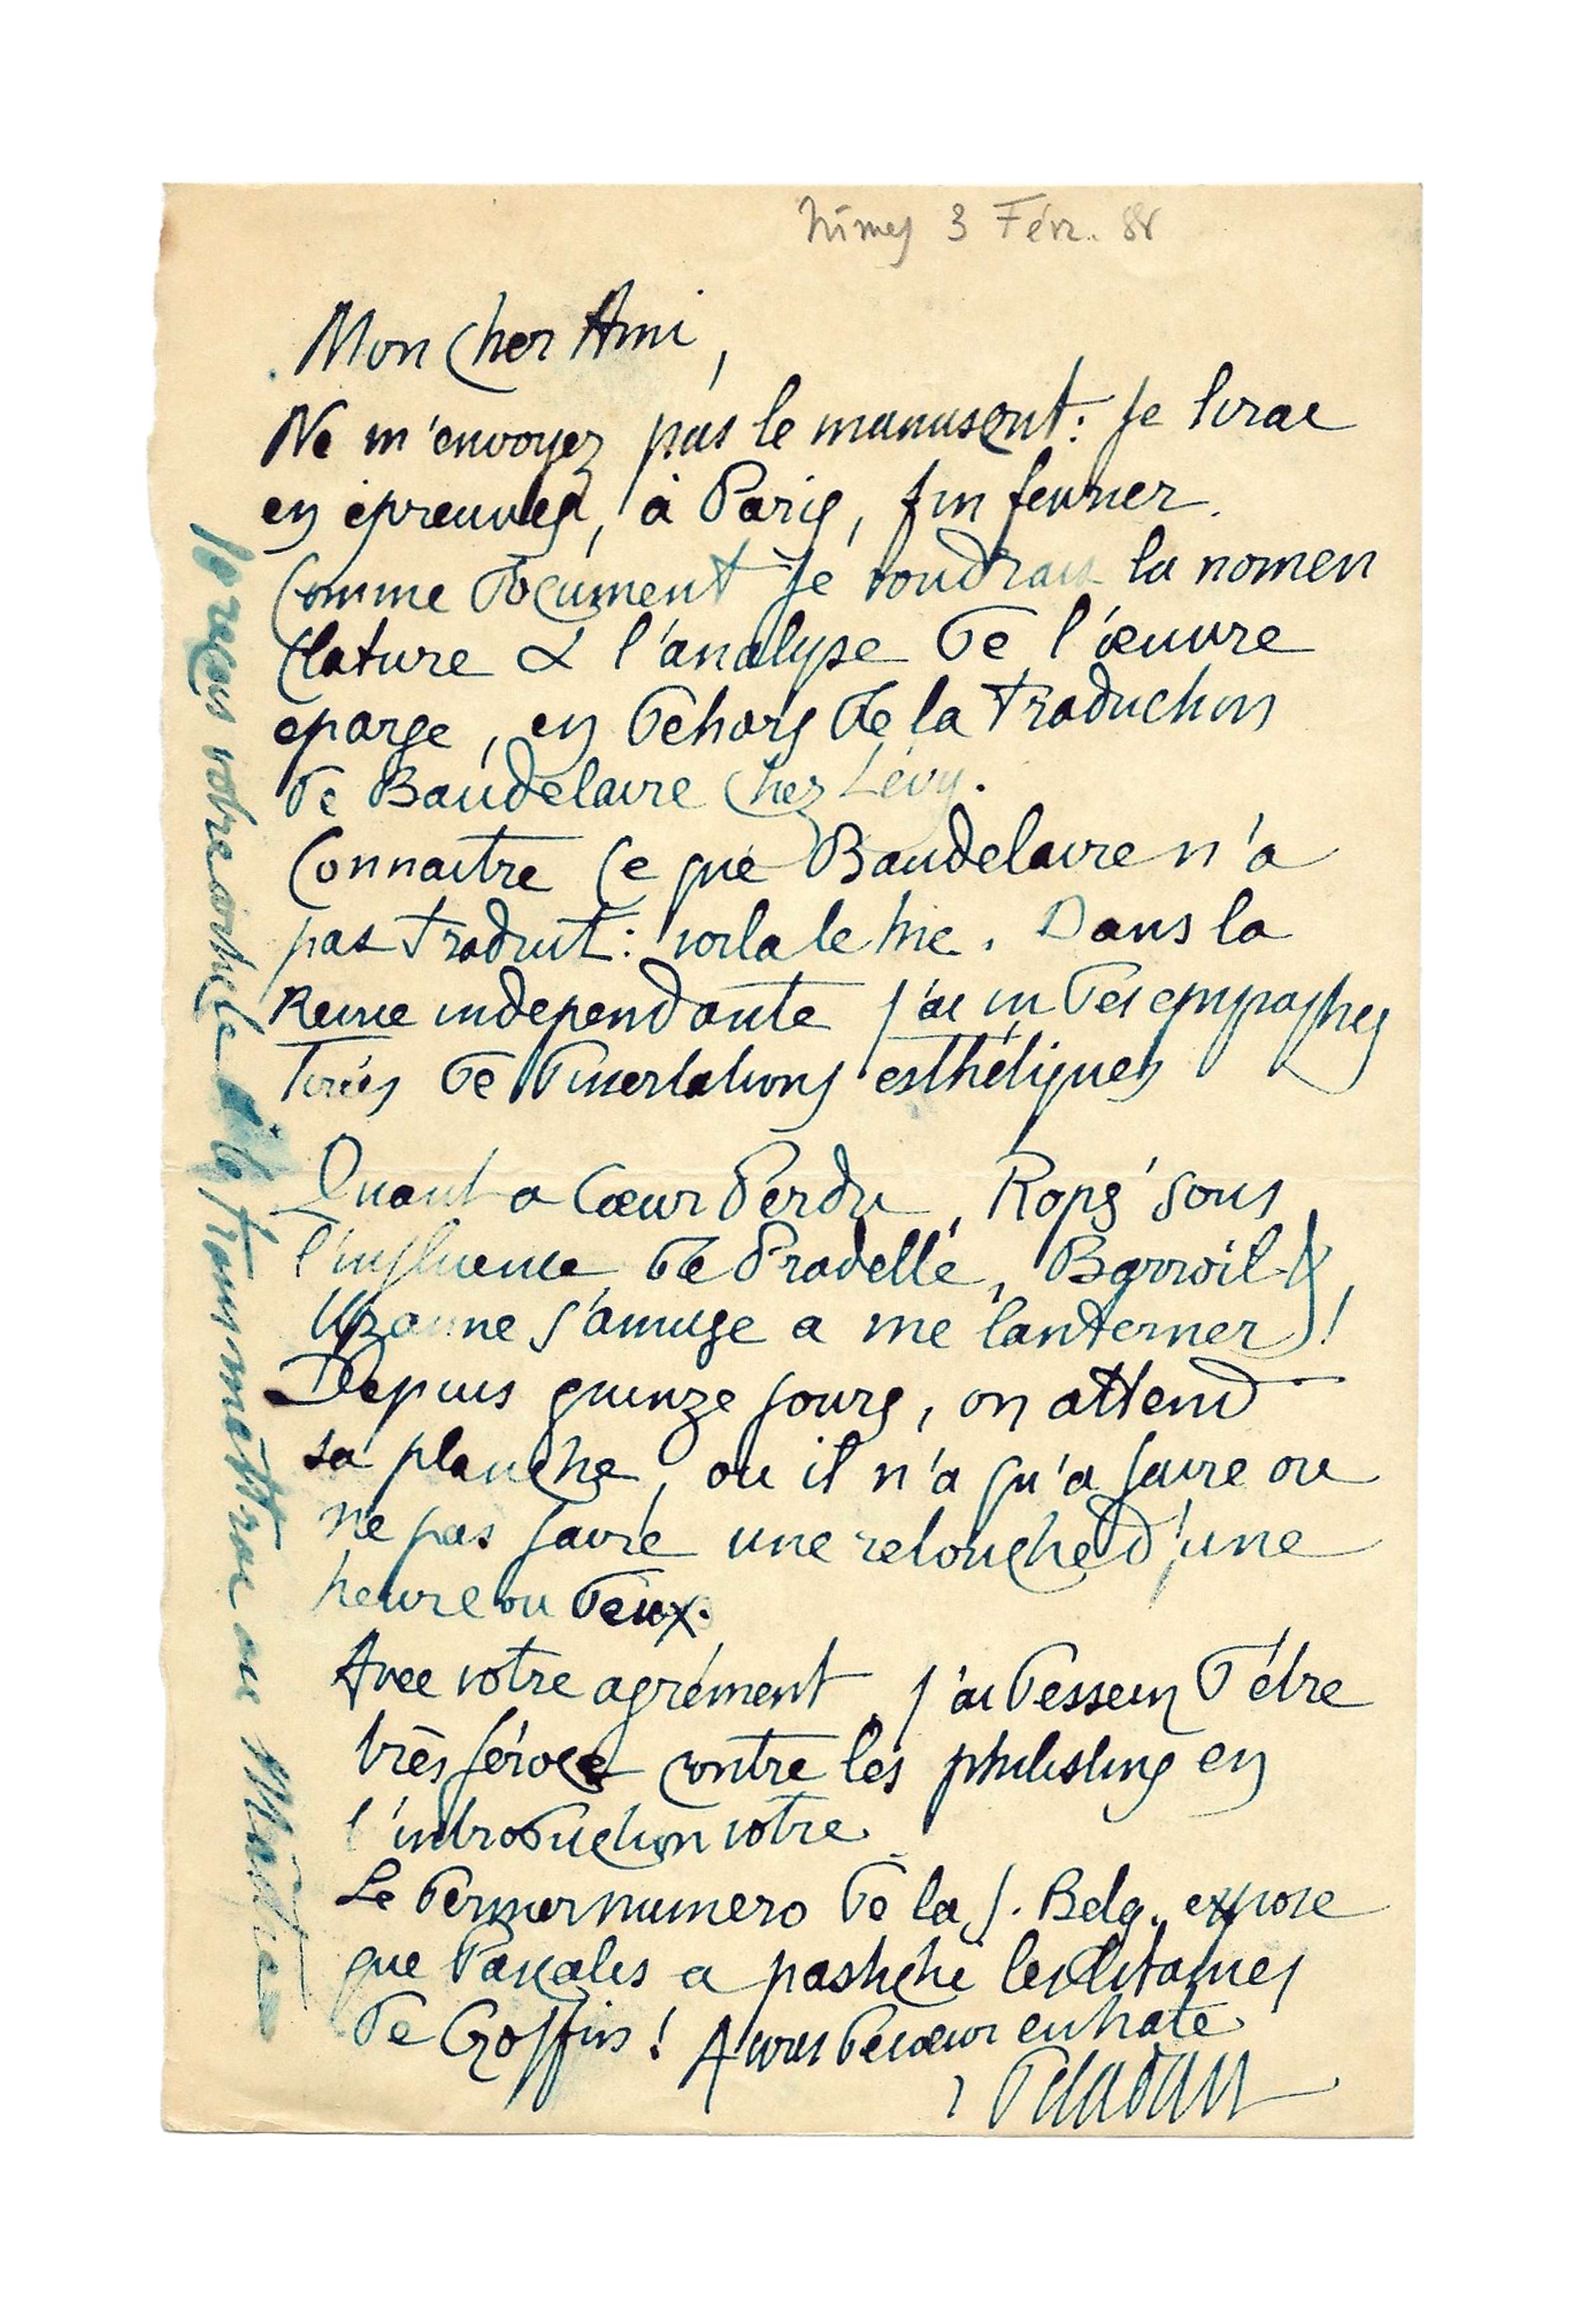 Nîmes 3 Févr. 88
Mon cher Ami,
Ne m'envoyez pas le manuscrit : je lirai
en épreuves, à Paris, fin fevrier.
Comme document je voudrais la nomen
clature & l'analyse de l'œuvre
eparse, en dehors de la traduction
de Baudelaire chez Lévy.
Connaitre ce que Baudelaire n'a
pas traduit : voila le hic. Dans la
Revue independante j'ai vu des epygraphes
tirées de dissertations esthétiques
Quant a Cœur Perdu, Rops sous
l'influence de Pradelle, Barroil &,
Uzanne s'amuse a me lanterner !
Depuis quinze jours, on attend
sa planche, ou il n'a qu'a faire ou
ne pas faire une retouche d'une
heure ou deux.
Avec votre agrément, j'ai dessein d'être
très féroce contre les philistins en
l'introduction votre.
Le dernier numero de la J. Belg. expose
que Pascalis a pastiché les litanies
de Goffin ! A vous de cœur en hate
Peladan
Je reçois votre article & le transmettrai au Maitre